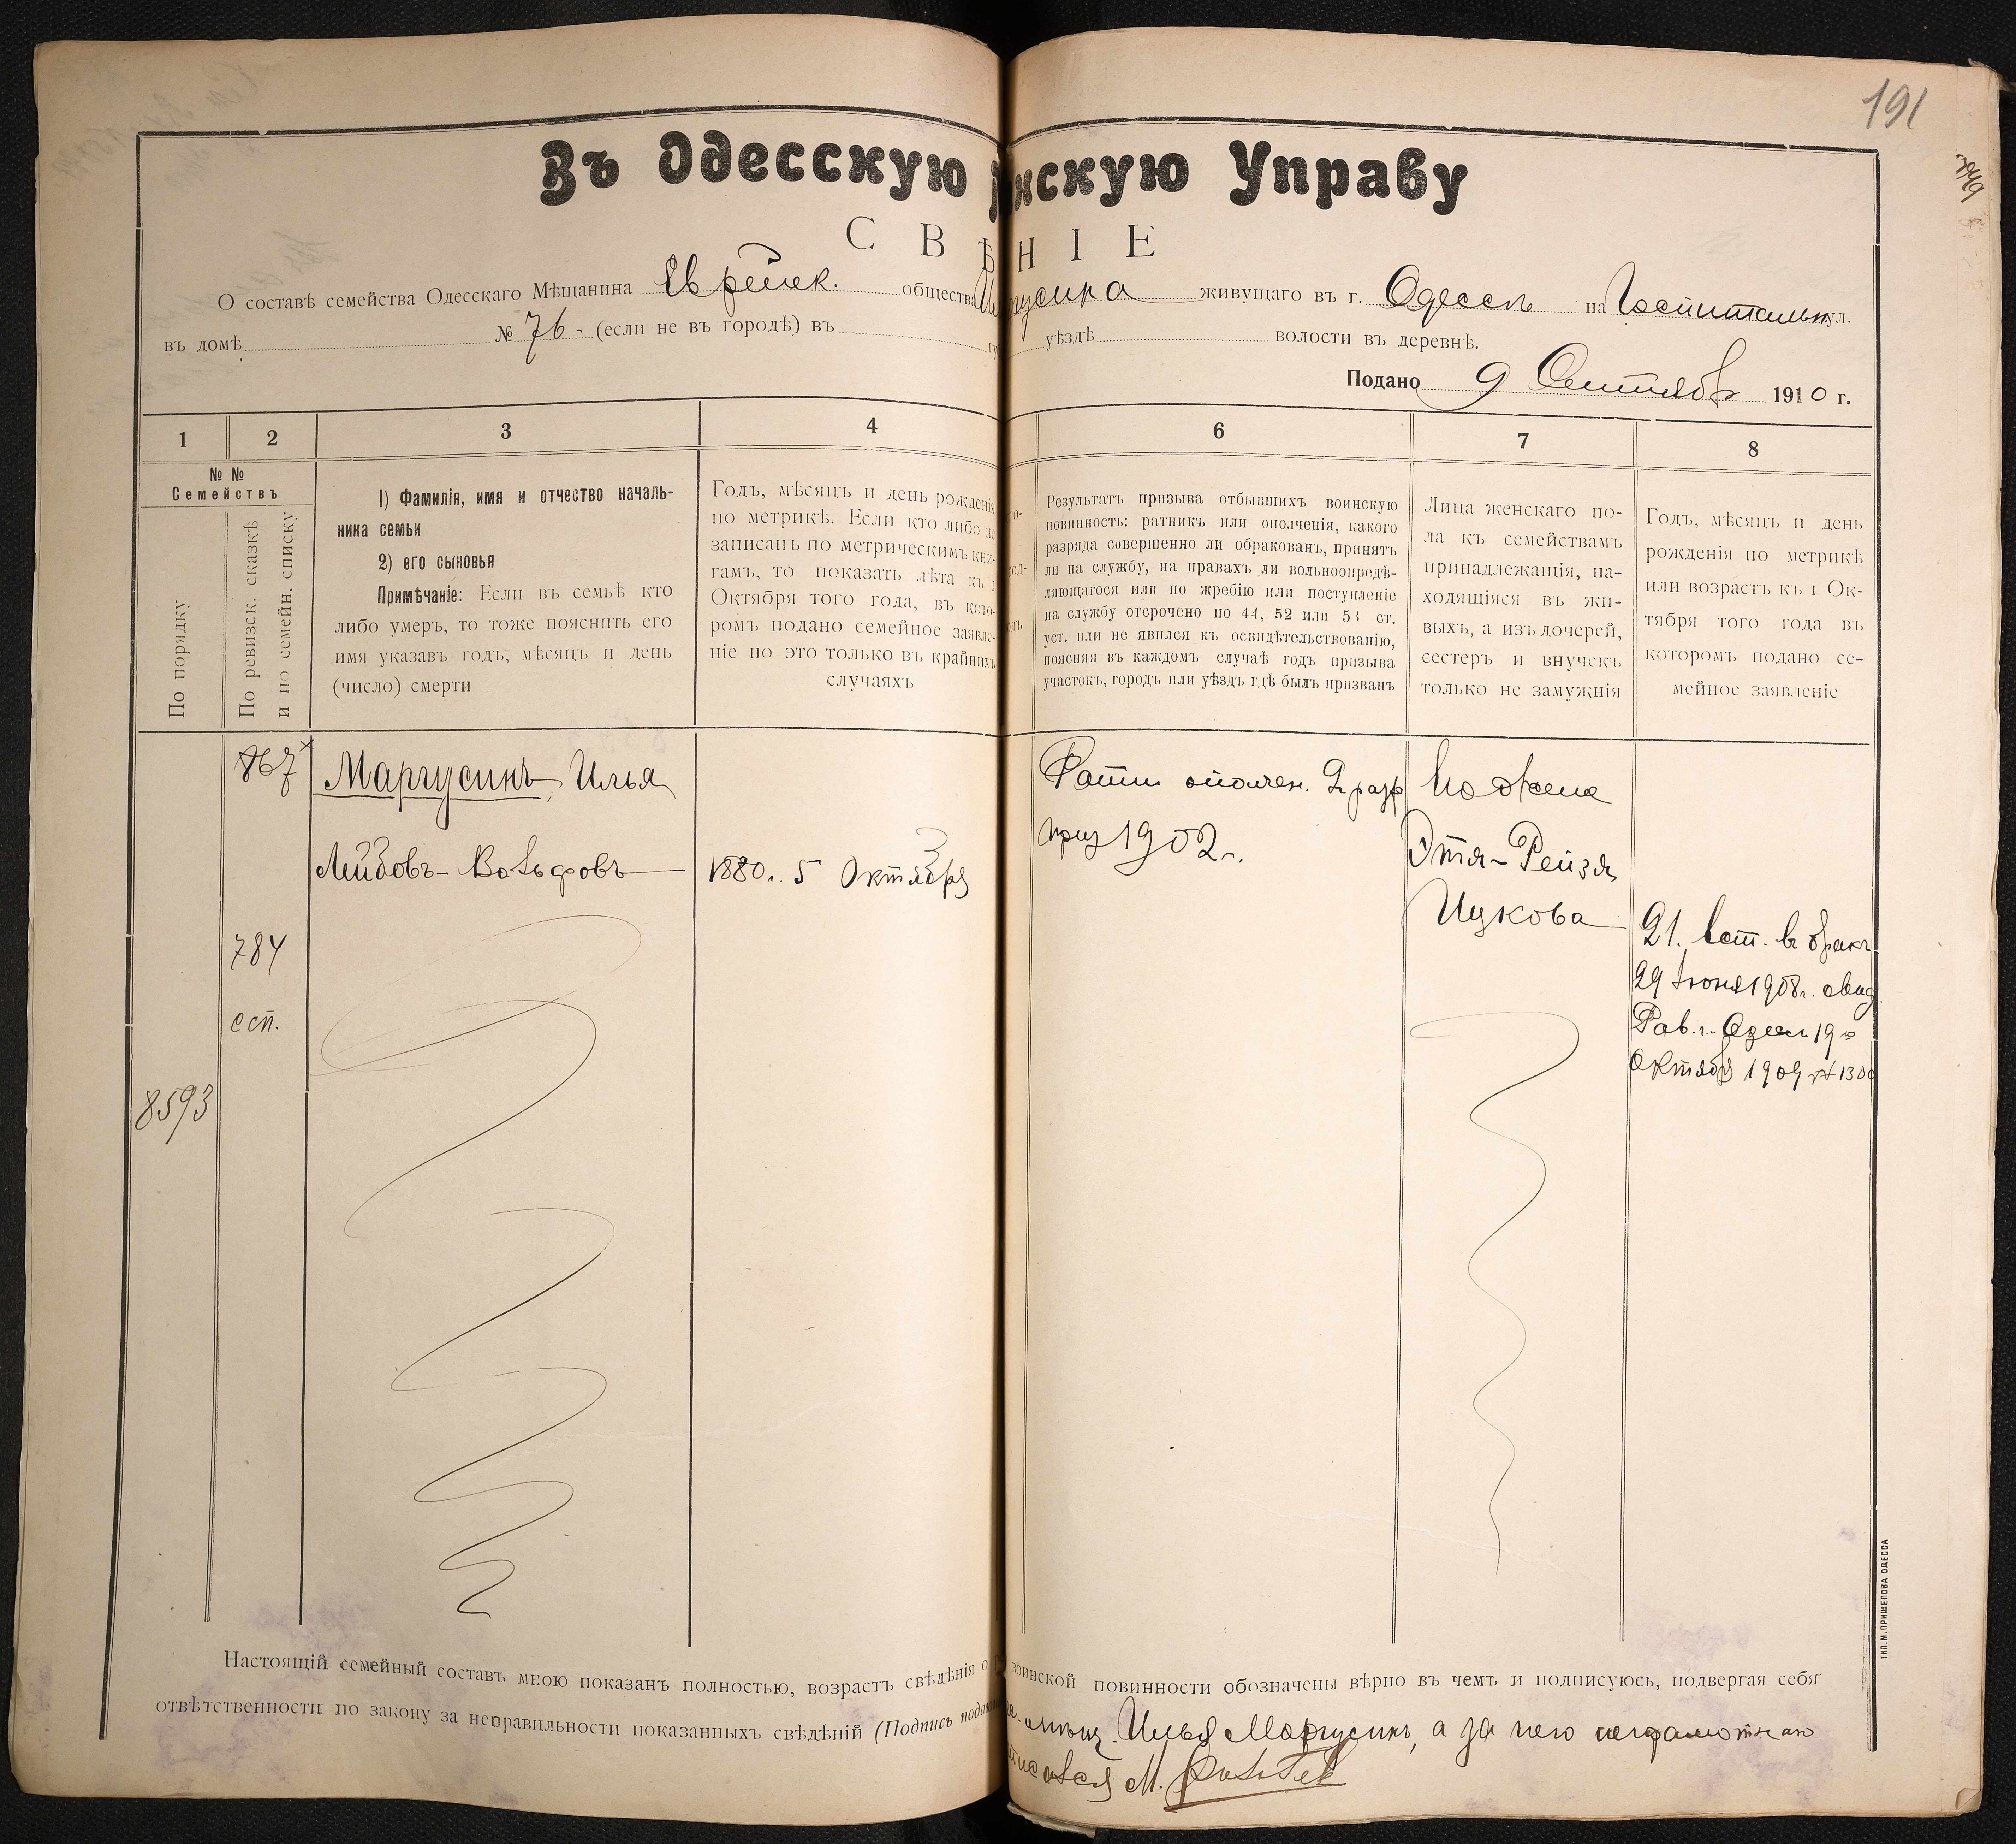 191
799
Въ Одесскую нскую Управу
С В Ѣ Н І Е
О составѣ семейства Одесскаго Мѣщанина Еврейск. общества живущаго въ г. Одессѣ на Госпитальн ул.
въ домѣ № 76 - (если не въ городѣ) въ уѣздѣ волости въ деревнѣ.
Подано 9 Сентября 1910 г.
1 2 3 4 6 7 8
№ №
Семействъ
По порядку
По ревизск. сказкѣ
и по семейн. списку
1) Фамилія, имя и отчество началь-
ника семьи
2) его сыновья
Примѣчаніе: Если въ семьѣ кто
либо умеръ, то тоже пояснить его
имя указавъ годъ, мѣсяцъ и день
(число) смерти
Годъ, мѣсяцъ и день рожденія
по метрикѣ. Если кто либо не
записанъ по метрическимъ кни-
гамъ, то показать лѣта къ 1
Октября того года, въ кото-
ромъ подано семейное заявле-
ніе но это только въ крайнихъ
случаяхъ
Результатъ призыва отбывшихъ воинскую
повинность: ратникъ или ополченія, какого
разряда совершенно ли обракованъ, принятъ
ли на службу, на правахъ ли вольноопредѣ-
ляющагося или по жребію или поступленіе
на службу отсрочено по 44, 52 или 53 ст.
уст. или не явился къ освидѣтельствованію,
поясняя въ каждомъ случаѣ годъ призыва
участокъ, городъ или уѣздъ гдѣ былъ призванъ
Лица женскаго по-
ла къ семействамъ
принадлежащія, на-
ходящіяся въ жи-
выхъ, а изъ дочерей,
сестеръ и внучекъ
только не замужнія
Годъ, мѣсяцъ и день
рожденія по метрикѣ
или возрастъ къ 1 Ок-
тября того года въ
которомъ подано се-
мейное заявленіе
867
Маргусинъ, Илья
Лейбовъ-Вольфовъ
784
8593
1880 г. 5 Октября
Ратн ополчен. 2 разр
приз 1902 г.
Его жена
Этя-Рейзя
Ицкова
21. вст. въ бракъ
29 Іюня 1908 г. свид
Рав. г. Одессы 19
Октября 1909 № 1300
Настоящій семейный составъ мною показанъ полностью, возрастъ свѣдѣнія о воинской повинности обозначены вѣрно въ чемъ и подписуюсь, подвергая себя
отвѣтственности по закону за неправильности показанныхъ свѣдѣній (Подпись Илья Маргусинъ, а за него неграмотнаго
М.
ТИП. М. ПРИЩЕПОВА ОДЕССА